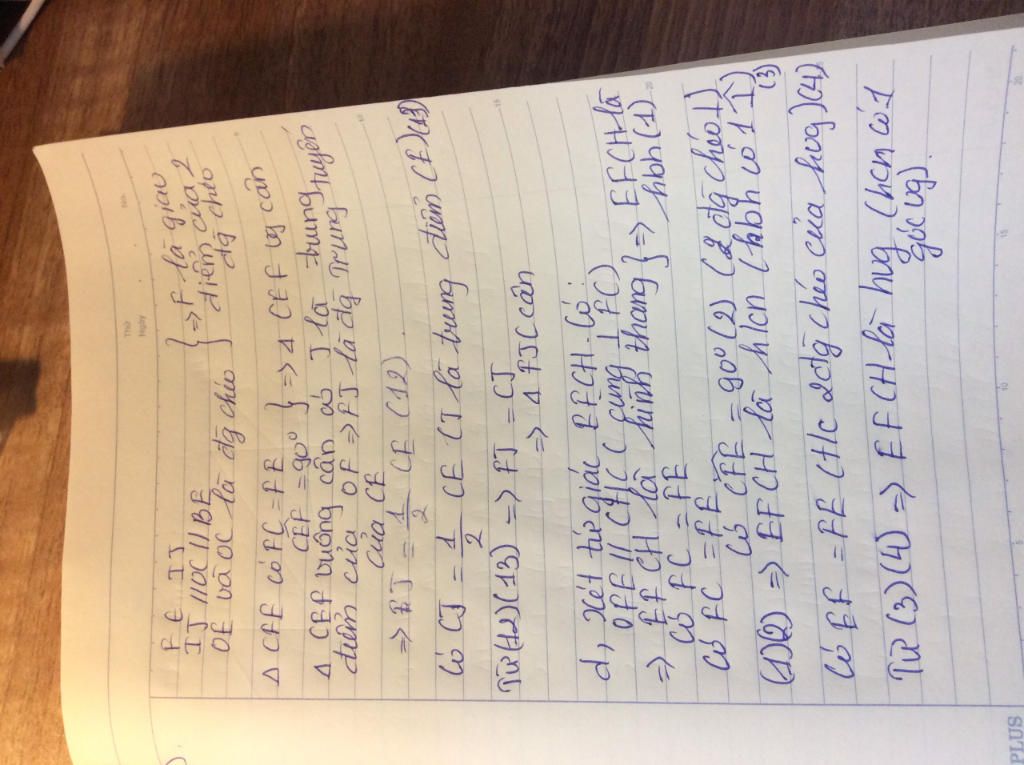 Thứ
Ngày
No.
F ∈ IJ
IJ // DC // BE } => F là giao
OE và OC là đg chéo } điểm của 2
đg chéo
Δ CFE có FC = FE } => Δ CEF vg cân
CÊF = 90°
Δ CEF vuông cân có J là trung
điểm của OF => FJ là đg trung tuyến
của CE
=> FJ = 1/2 CE (12)
Có CJ = 1/2 CE (J là trung điểm CE) (13)
Từ (12) (13) => FJ = CJ
=> Δ FJC cân
d, Xét tứ giác EFCH có:
OFE // CHC (cùng ⊥ FC)
=> EFCH là hình thang } => EFCH là
Có FC = FE hbh (1)
Có FC = FE
Có CFE = 90° (2) (2 đg chéo ⊥)
(1)(2) => EFCH là hcn (hbh có 1 ⊥) (3)
Có EF = FE CHc 2 đg chéo của hvg) (4)
Từ (3) (4) => EFCH là hvg (hcn có 1
góc vg).
5
10
15
20
PLUS